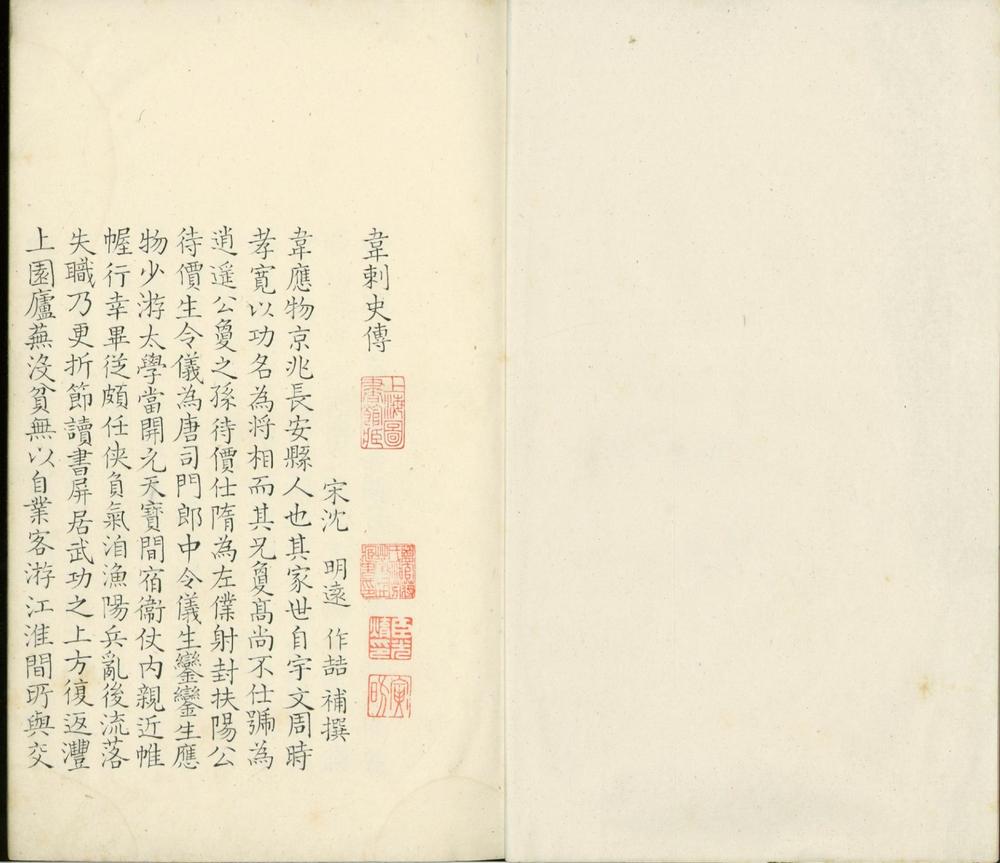 韋刺史傳
宋沈 明遠 作喆 補撰
韋應物京兆長安縣人也其家世自宇文周時
孝寬以功名為將相而其兄敻髙尚不仕號為
逍遥公敻之孫待價仕隋為左僕射封扶陽公
待價生令儀為唐司門郎中令儀生鑾鑾生應
物少游太學當開元天寳間宿衞仗内親近帷
幄行幸畢從頗任俠負氣洎漁陽兵亂後流落
失職乃更折節讀書屏居武功之上方復返灃
上園廬蕪没貧無以自業客游江淮間所與交
上海圖書館藏